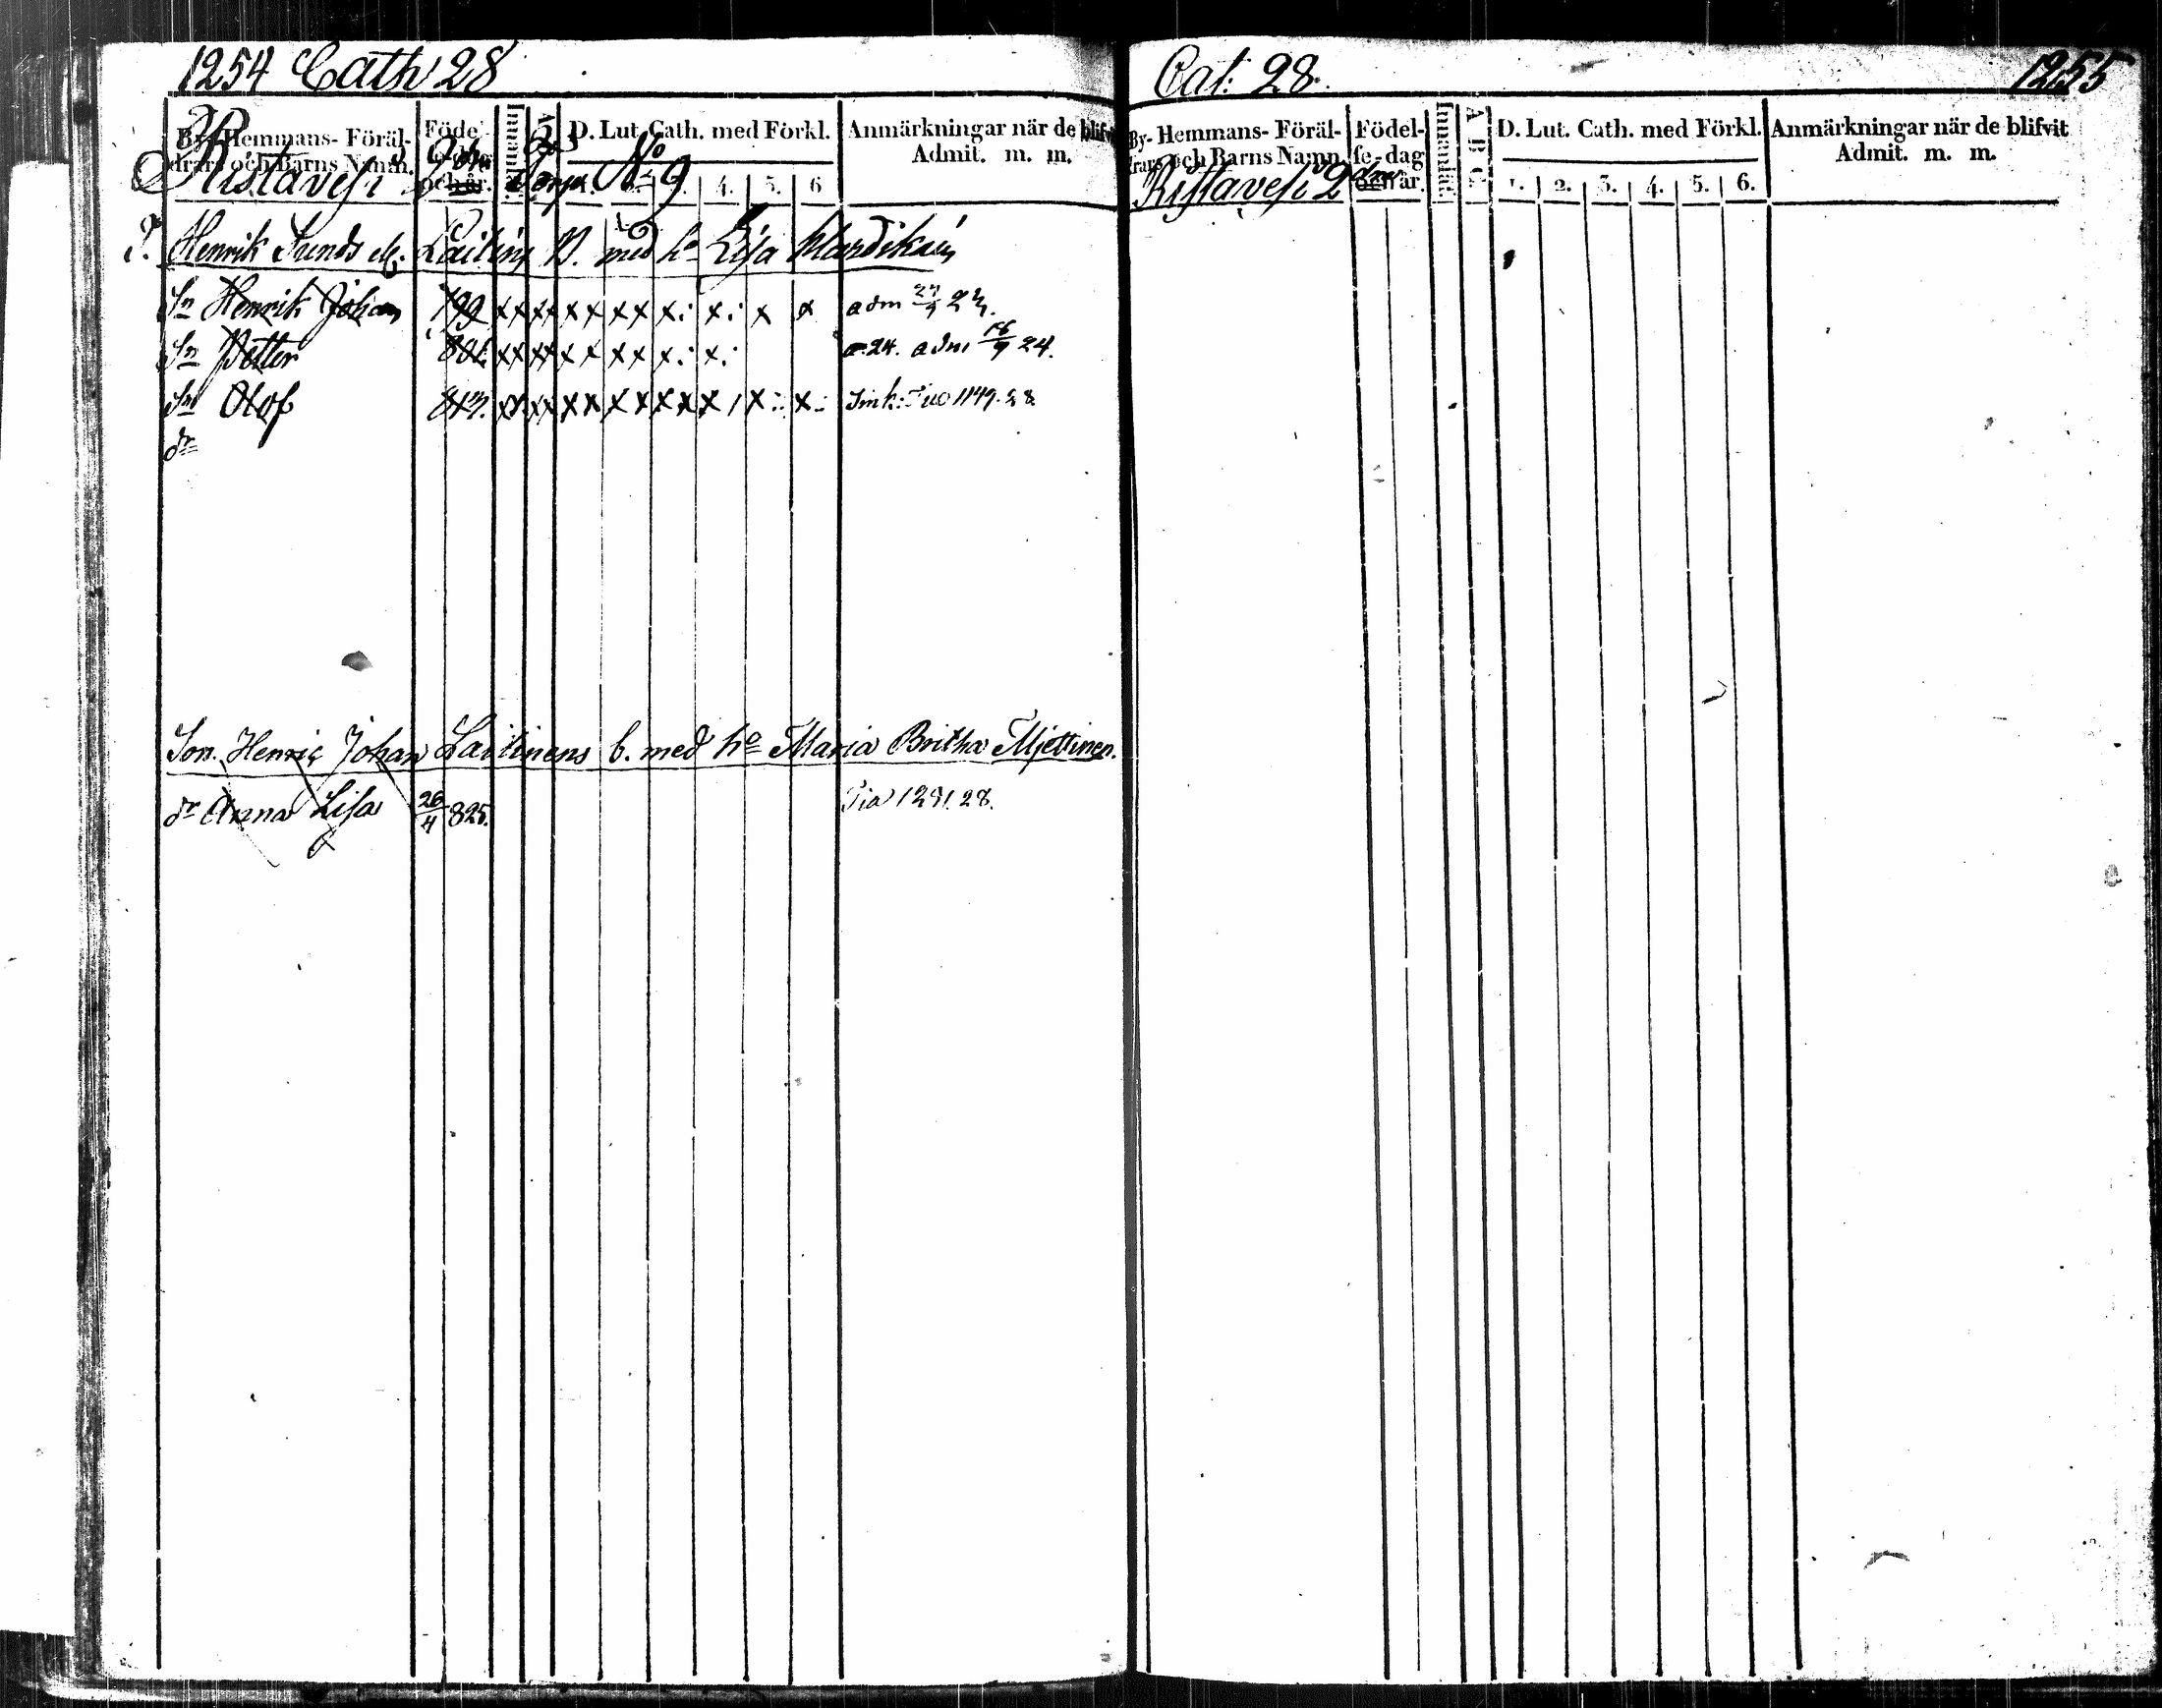 1254 Cath 28
By- Hemmans- Föräl-
drars och Barns Namn.
Föde
och år.
Innanläs
D. Lut. Cath. med Förkl.
4. 5. 6
Anmärkningar när de blifvit
Admit. m. m.
Ristavesi 2 dra No 9
Henrik Sunds Laitins B. med ho Lisa
Sn Henrik Johan 799 xx xx xx xx x: x: x x adm 23.
Sn Petter 806 xx xx xx xx x: x: a. 24. adm 16/9 24.
Sn Olof xx xx xx xx xx x x x Smk: 1149. 28
dr
Son. Henric Johan Laitinens b. med ho Maria Britha Mjettinen.
dr Anna Lisa 26/4 825. Pia 1291. 28.
Cat. 28. 1255
By- Hemmans- Föräl-
drars och Barns Namn.
Födel-
se-dag
och år.
Innanläs
A B C
D. Lut. Cath. med Förkl.
1. 2. 3. 4. 5. 6.
Anmärkningar när de blifvit
Admit. m. m.
Ristavesi 2 dra